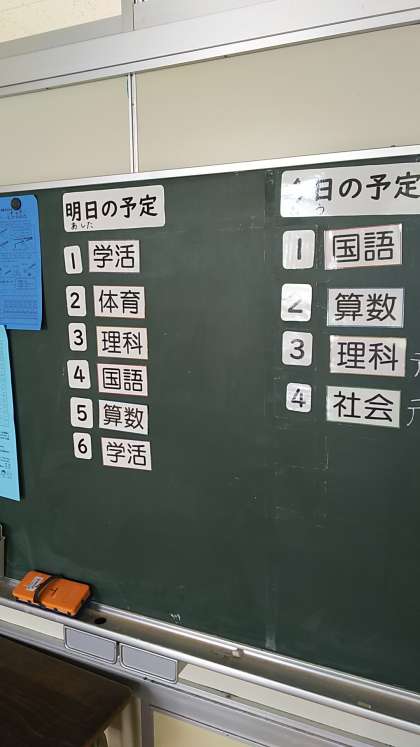 明日の予定
あした
1 学活
2 体育
3 理科
4 国語
5 算数
6 学活
今日の予定
1 国語
2 算数
3 理科
4 社会